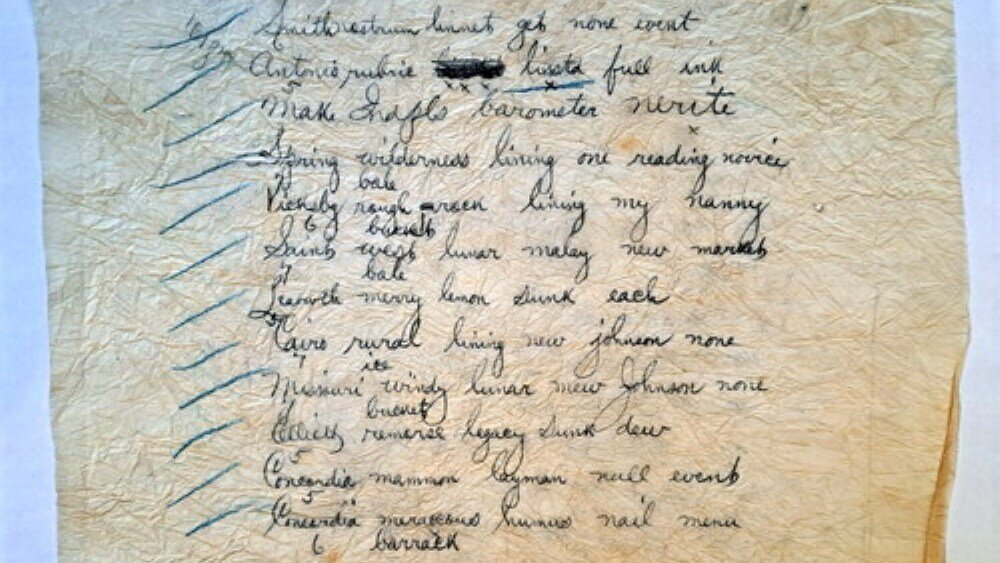 Smith nostrum linnet get none event
Antonio rubric lissta full ink
Make Indpls barometer nerite
5
Spring wilderness lining one reading novice
bale
Vicksbg rough rack lining my nanny
6 bucket
Saint west lunar malay new market
7 bale
Leavwth merry lemon sunk each
Cairo rural lining new johnson none
7 ice
Missouri windy lunar mew Johnson none
bucket
Elliott removal legacy sunk dew
5
Concordia mammon layman null event
5
Concordia meraccous humus nail menu
6 barrack